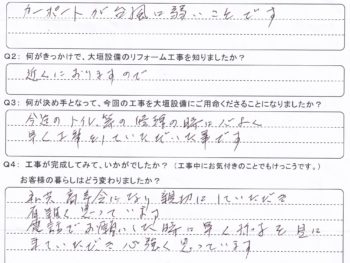 カーポートが台風に弱いことです
Q2：何がきっかけで、大垣設備のリフォーム工事を知りましたか？
近くにおりますので
Q3：何が決め手となって、今回の工事を大垣設備にご用命くださることになりましたか？
今迄のトイレ等の修理の時に心よく
早く工事をしていただいた事です
Q4：工事が完成してみて、いかがでしたか？（工事中にお気付きのことでもけっこうです。）
お客様の暮らしはどう変わりましたか？
私共高令になり親切にしていただき
有難く思っています
電話でお願いした時に早く様子を見に
来ていただき心強く思っています